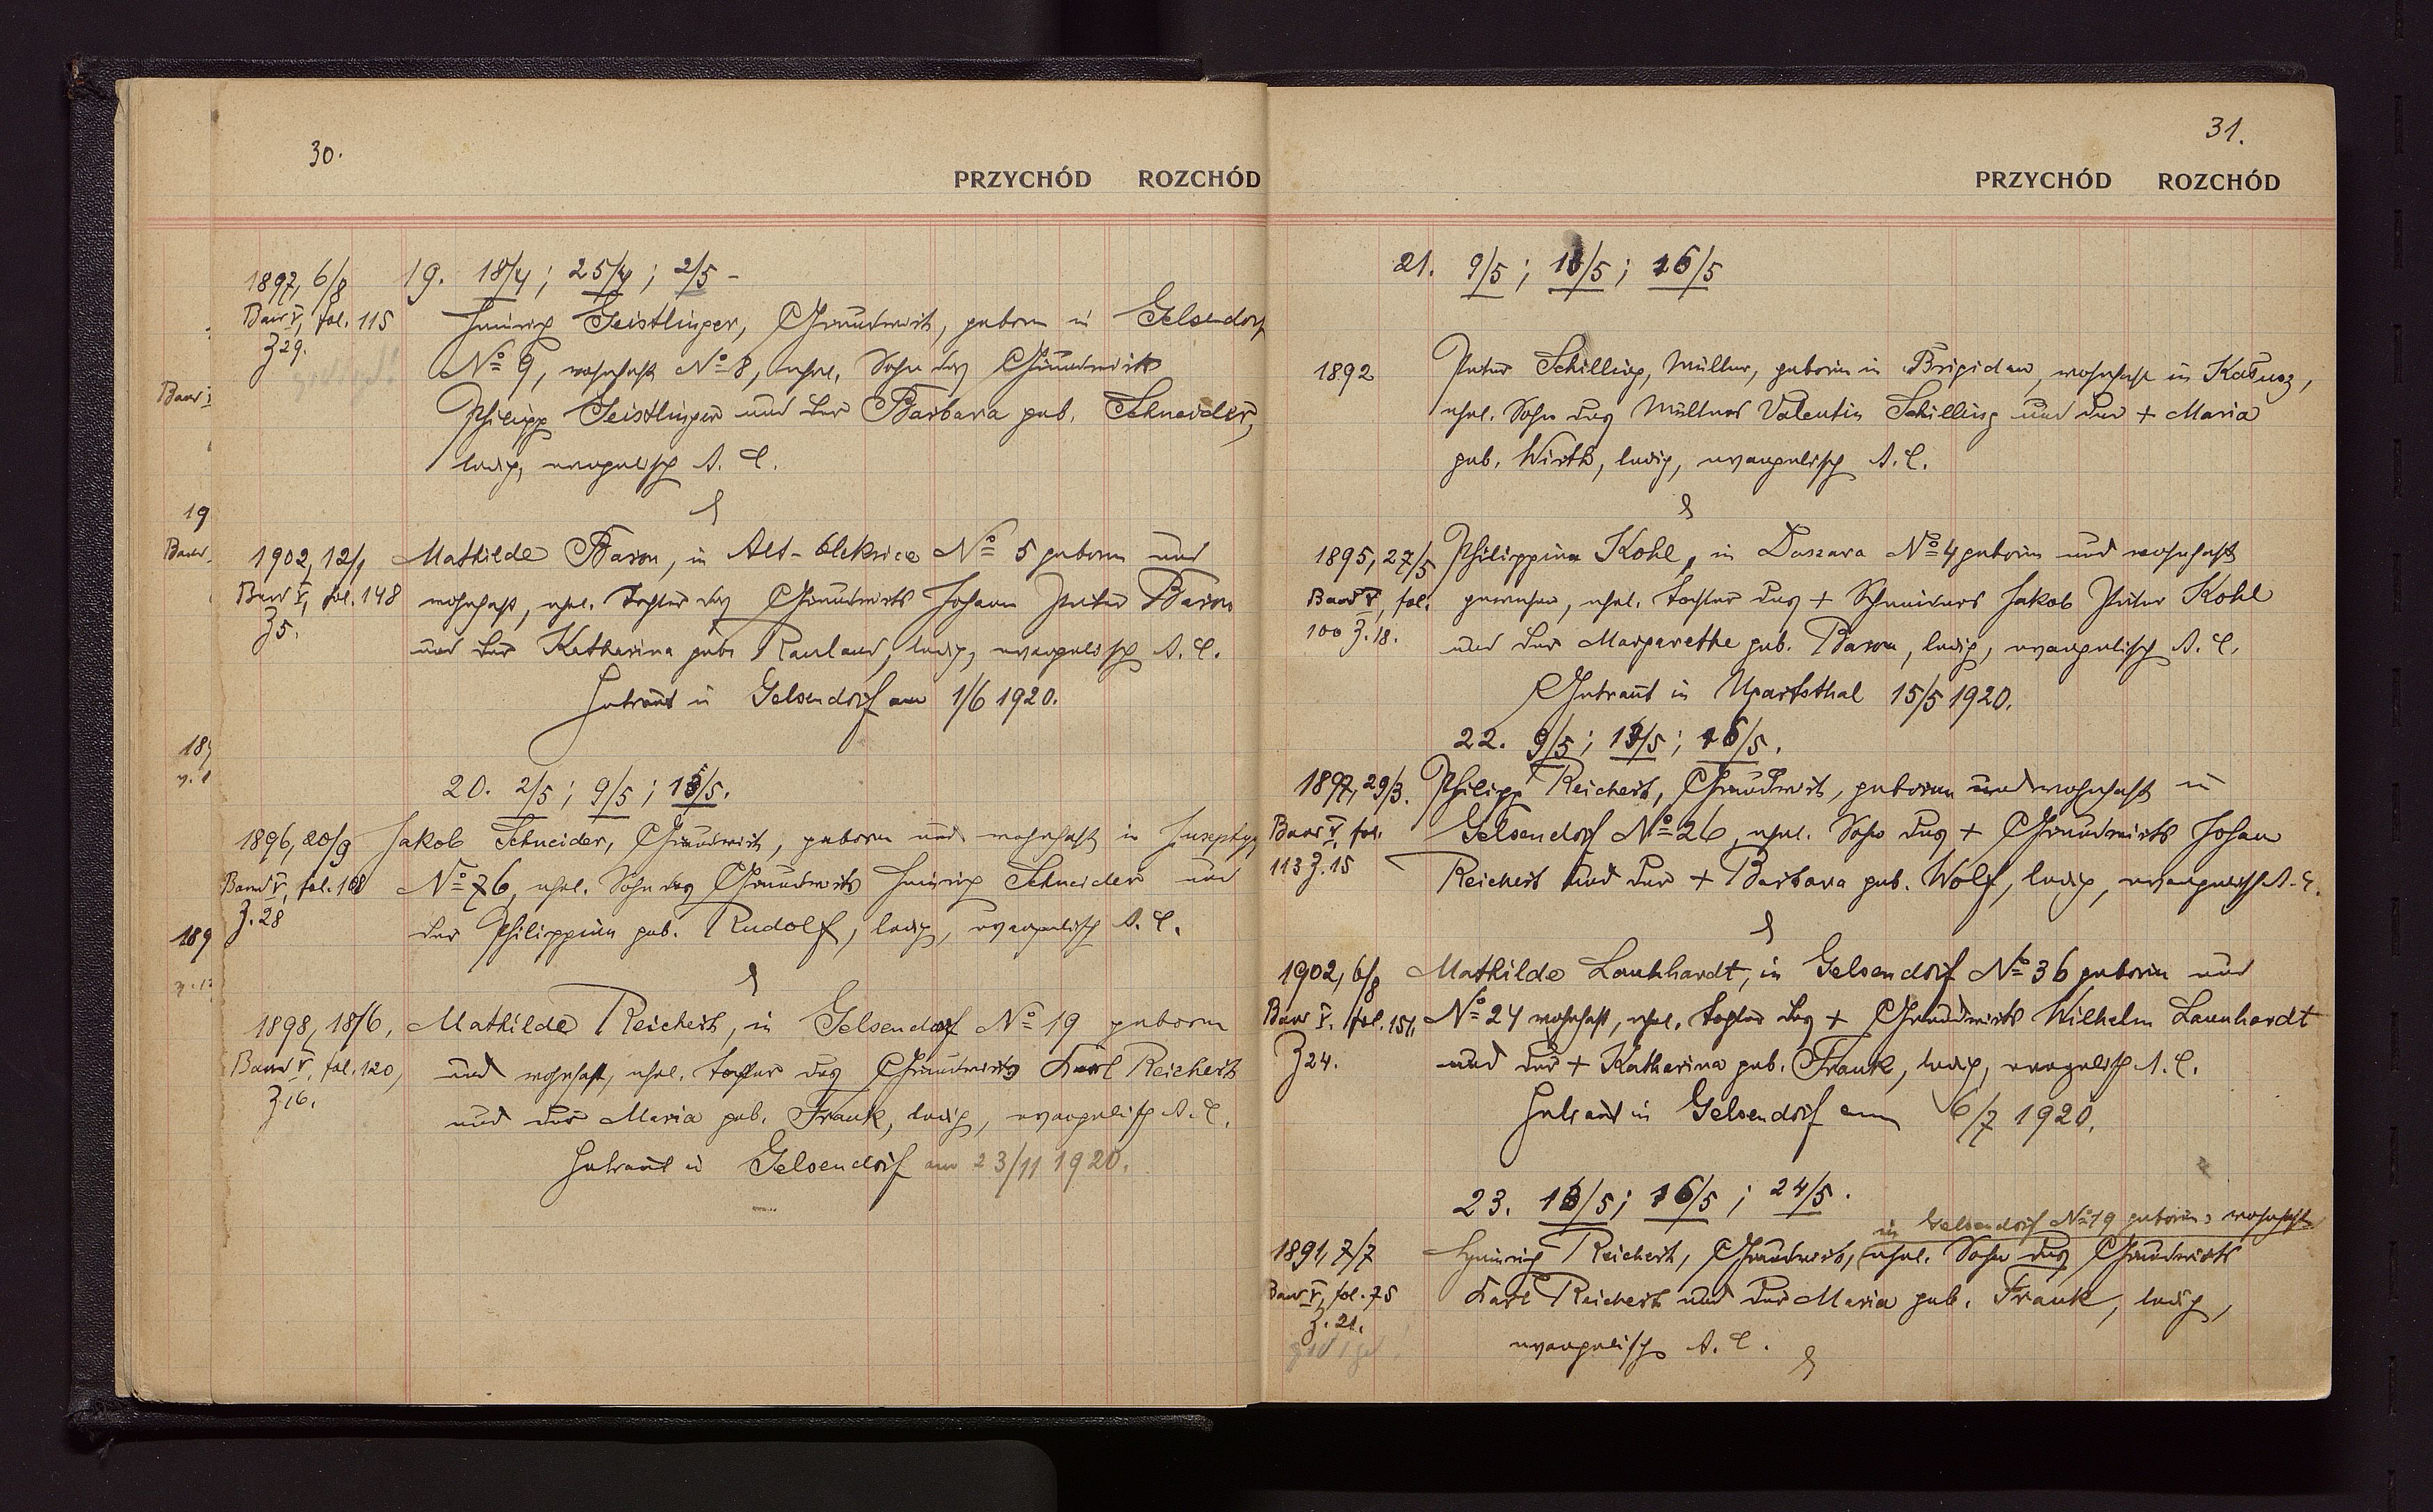 30.
PRZYCHÓD ROZCHÓD
1897, 6/8 19. 18/4; 25/4; 2/5 -
Band V, fol. 115 Heinrich Geistlinger, Grundwirt, geboren in Gelsendorf
Z 29. No 9, wohnhaft No 8, ehel. Sohn des Grundwirts
Philipp Geistlinger und der Barbara geb. Schneider,
ledig, evangelisch A. C.
&
1902, 12/1 Mathilde Baron, in Alt-Oleksice No 5 geboren und
Band V, fol. 148 wohnhaft, ehel. Tochter des Grundwirts Johann Peter Baron
Z 5. und der Katharina geb. Rauland, ledig, evangelisch A. C.
Getraut in Gelsendorf am 1/6 1920.
20. 2/5; 9/5; 13/5.
1896, 20/9 Jakob Schneider, Grundwirt, geboren und wohnhaft in
Band V, fol. 108 No 76, ehel. Sohn des Grundwirts Heinrich Schneider und
Z. 28 der Philippine geb. Rudolf, ledig, evangelisch A. C.
&
1898, 18/6, Mathilde Reichert, in Gelsendorf No 19 geboren
Band V, fol. 120, und wohnhaft, ehel. Tochter des Grundwirts Karl Reichert
Z 16. und der Maria geb. Frank, ledig, evangelisch A. C.
Getraut in Gelsendorf am 23/11 1920.
31.
PRZYCHÓD ROZCHÓD
21. 9/5; 13/5; 16/5
1892 Peter Schilling, Müller, geboren in Brigidau, wohnhaft in Kałusz,
ehel. Sohn des Müllers Valentin Schilling und der + Maria
geb. Wirth, ledig, evangelisch A. C.
&
1895, 27/5 Philippine Kohl, in Daszava No 4 geboren und wohnhaft
Band V, fol. gewesen, ehel. Tochter des + Schneiders Jakob Peter Kohl
100 Z. 18. und der Margarethe geb. Baron, ledig, evangelisch A. C.
Getraut in Ugartsthal 15/5 1920.
22. 9/5; 13/5; 16/5.
1897, 29/3. Philipp Reichert, Grundwirt, geboren und wohnhaft in
Band V, fol. Gelsendorf No 26, ehel. Sohn des + Grundwirts Johan
113 Z. 15 Reichert und der + Barbara geb. Wolf, ledig, evangelisch A. C.
&
1902, 6/8 Mathilde Launhardt, in Gelsendorf No 36 geboren und
Band V. fol. 151, No 24 wohnhaft, ehel. Tochter des + Grundwirts Wilhelm Launhardt
Z 24. und der + Katharina geb. Frank, ledig, evangelisch A. C.
Getraut in Gelsendorf am 6/7 1920.
23. 13/5; 16/5; 24/5.
in Gelsendorf No 19 geboren, wohnhaft
1891, 7/7 Heinrich Reichert, Grundwirt, ehel. Sohn des Grundwirts
Band V, fol. 75 Karl Reichert und der Maria geb. Frank, ledig,
Z. 21. evangelisch A. C.
&